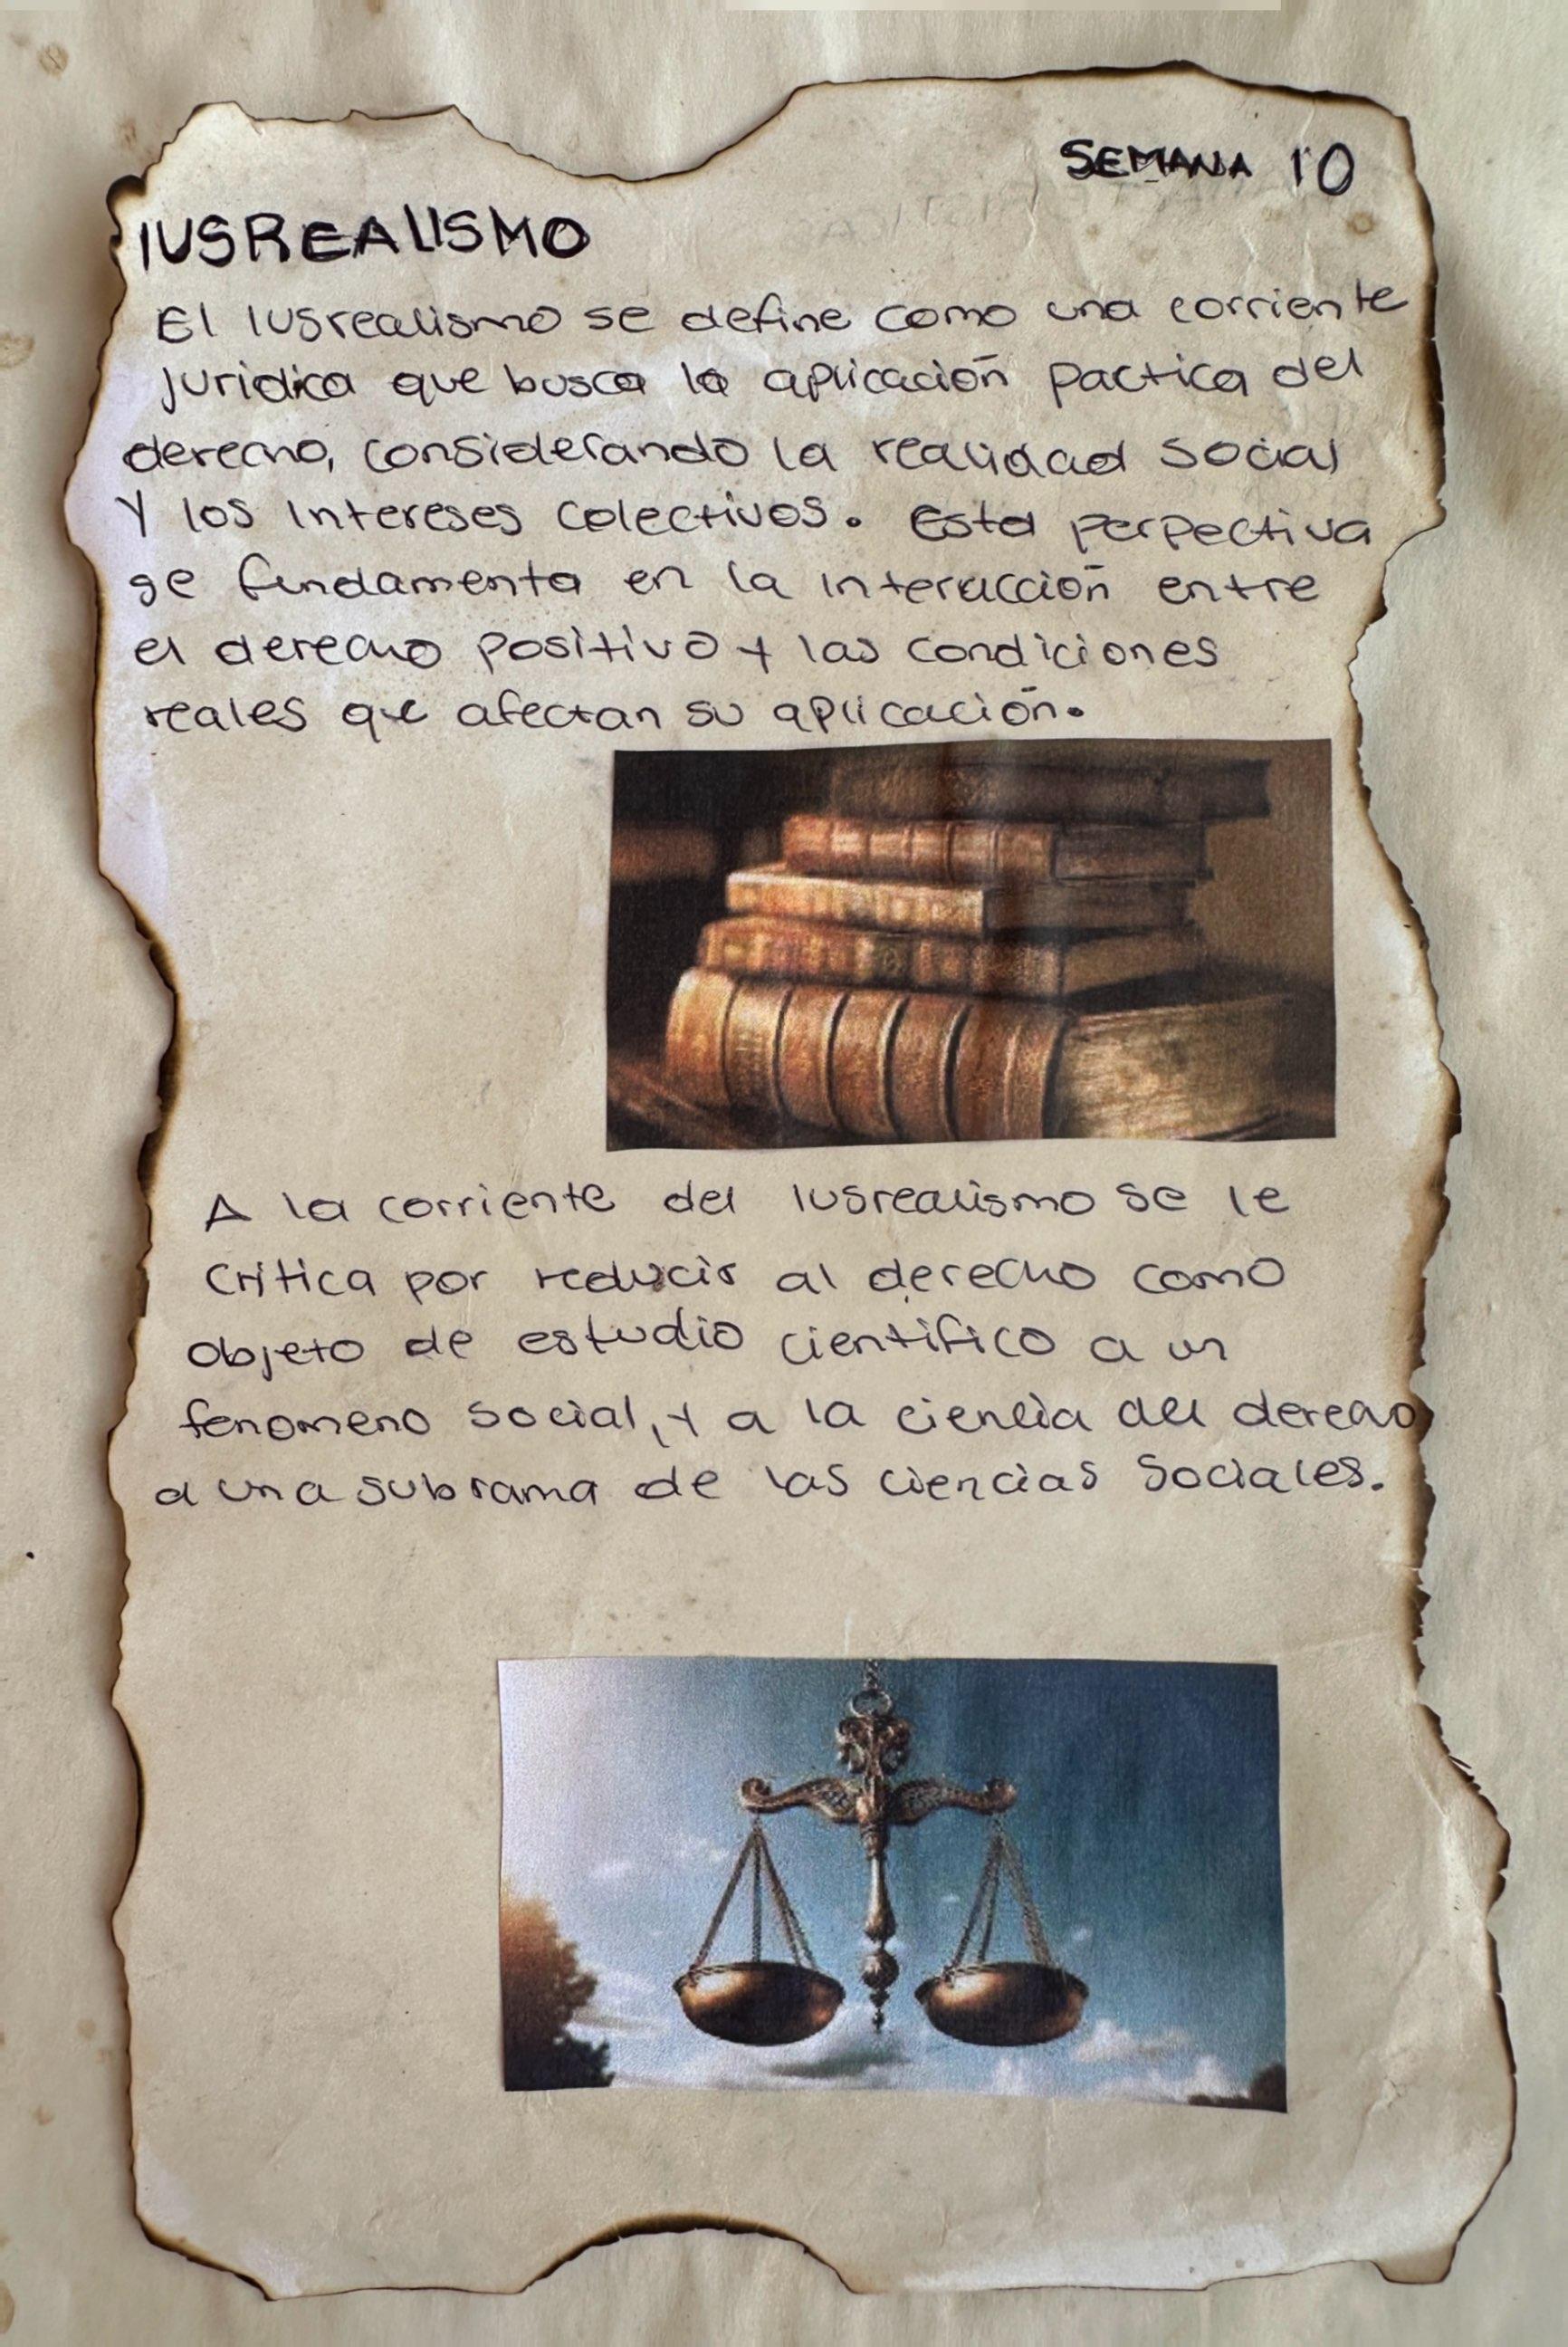 SEMANA 10
IUSREALISMO
El Iusrealismo se define como una corriente
juridica que busca la aplicación pactica del
derecho, considerando la realidad social
Y los Intereses colectivos. Esta perpectiva
se fundamenta en la interacción entre
el derecho positivo y las condiciones
reales que afectan su aplicación.
A la corriente del Iusrealismo se le
critica por reducir al derecho como
objeto de estudio cientifico a un
fenomeno social, y a la ciencia del derecho
a una subrama de las ciencias sociales.